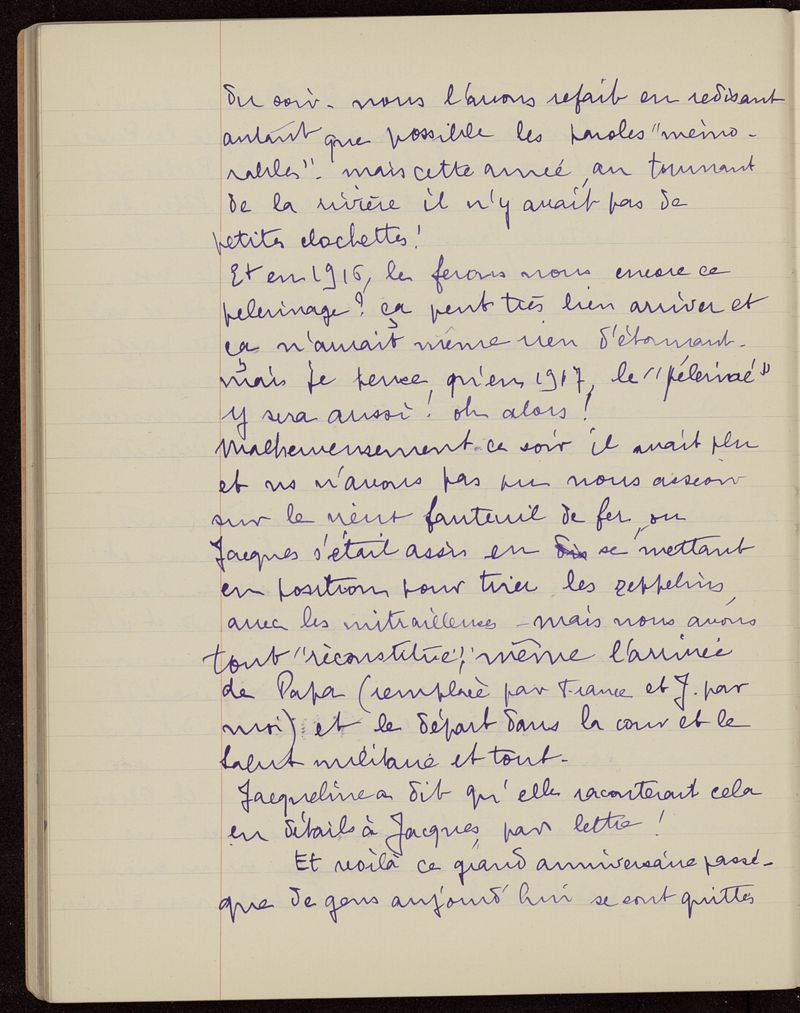 du soir. nous l'avons refait en redisant
autant que possible les paroles "mémo-
rables". mais cette année, au tournant
de la rivière il n'y avait pas de
petites clochettes!
Et en 1916, le ferons nous encore ce
pelerinage? ça peut très bien arriver et
ça n'aurait même rien d'étonnant.
mais je pense, qu'en 1917, le "pélerinné"
y sera aussi! oh alors!
Malheureusement ce soir il avait plu
et ns n'avons pas pu nous asseoir
sur le vieux fauteuil de fer, où
Jacques s'était assis en se mettant
en position pour tirer les zeppelins
avec les mitrailleuses - mais nous avons
tout "réconstitué", même l'arrivée
de Papa (remplacé par France et J. par
moi) et le départ dans la cour et le
salut militaire et tout.
Jacqueline a dit qu'elle raconterait cela
en détails à Jacques, par lettre!
Et voilà ce grand anniversaire passé -
que de gens aujourd'hui se sont quittés